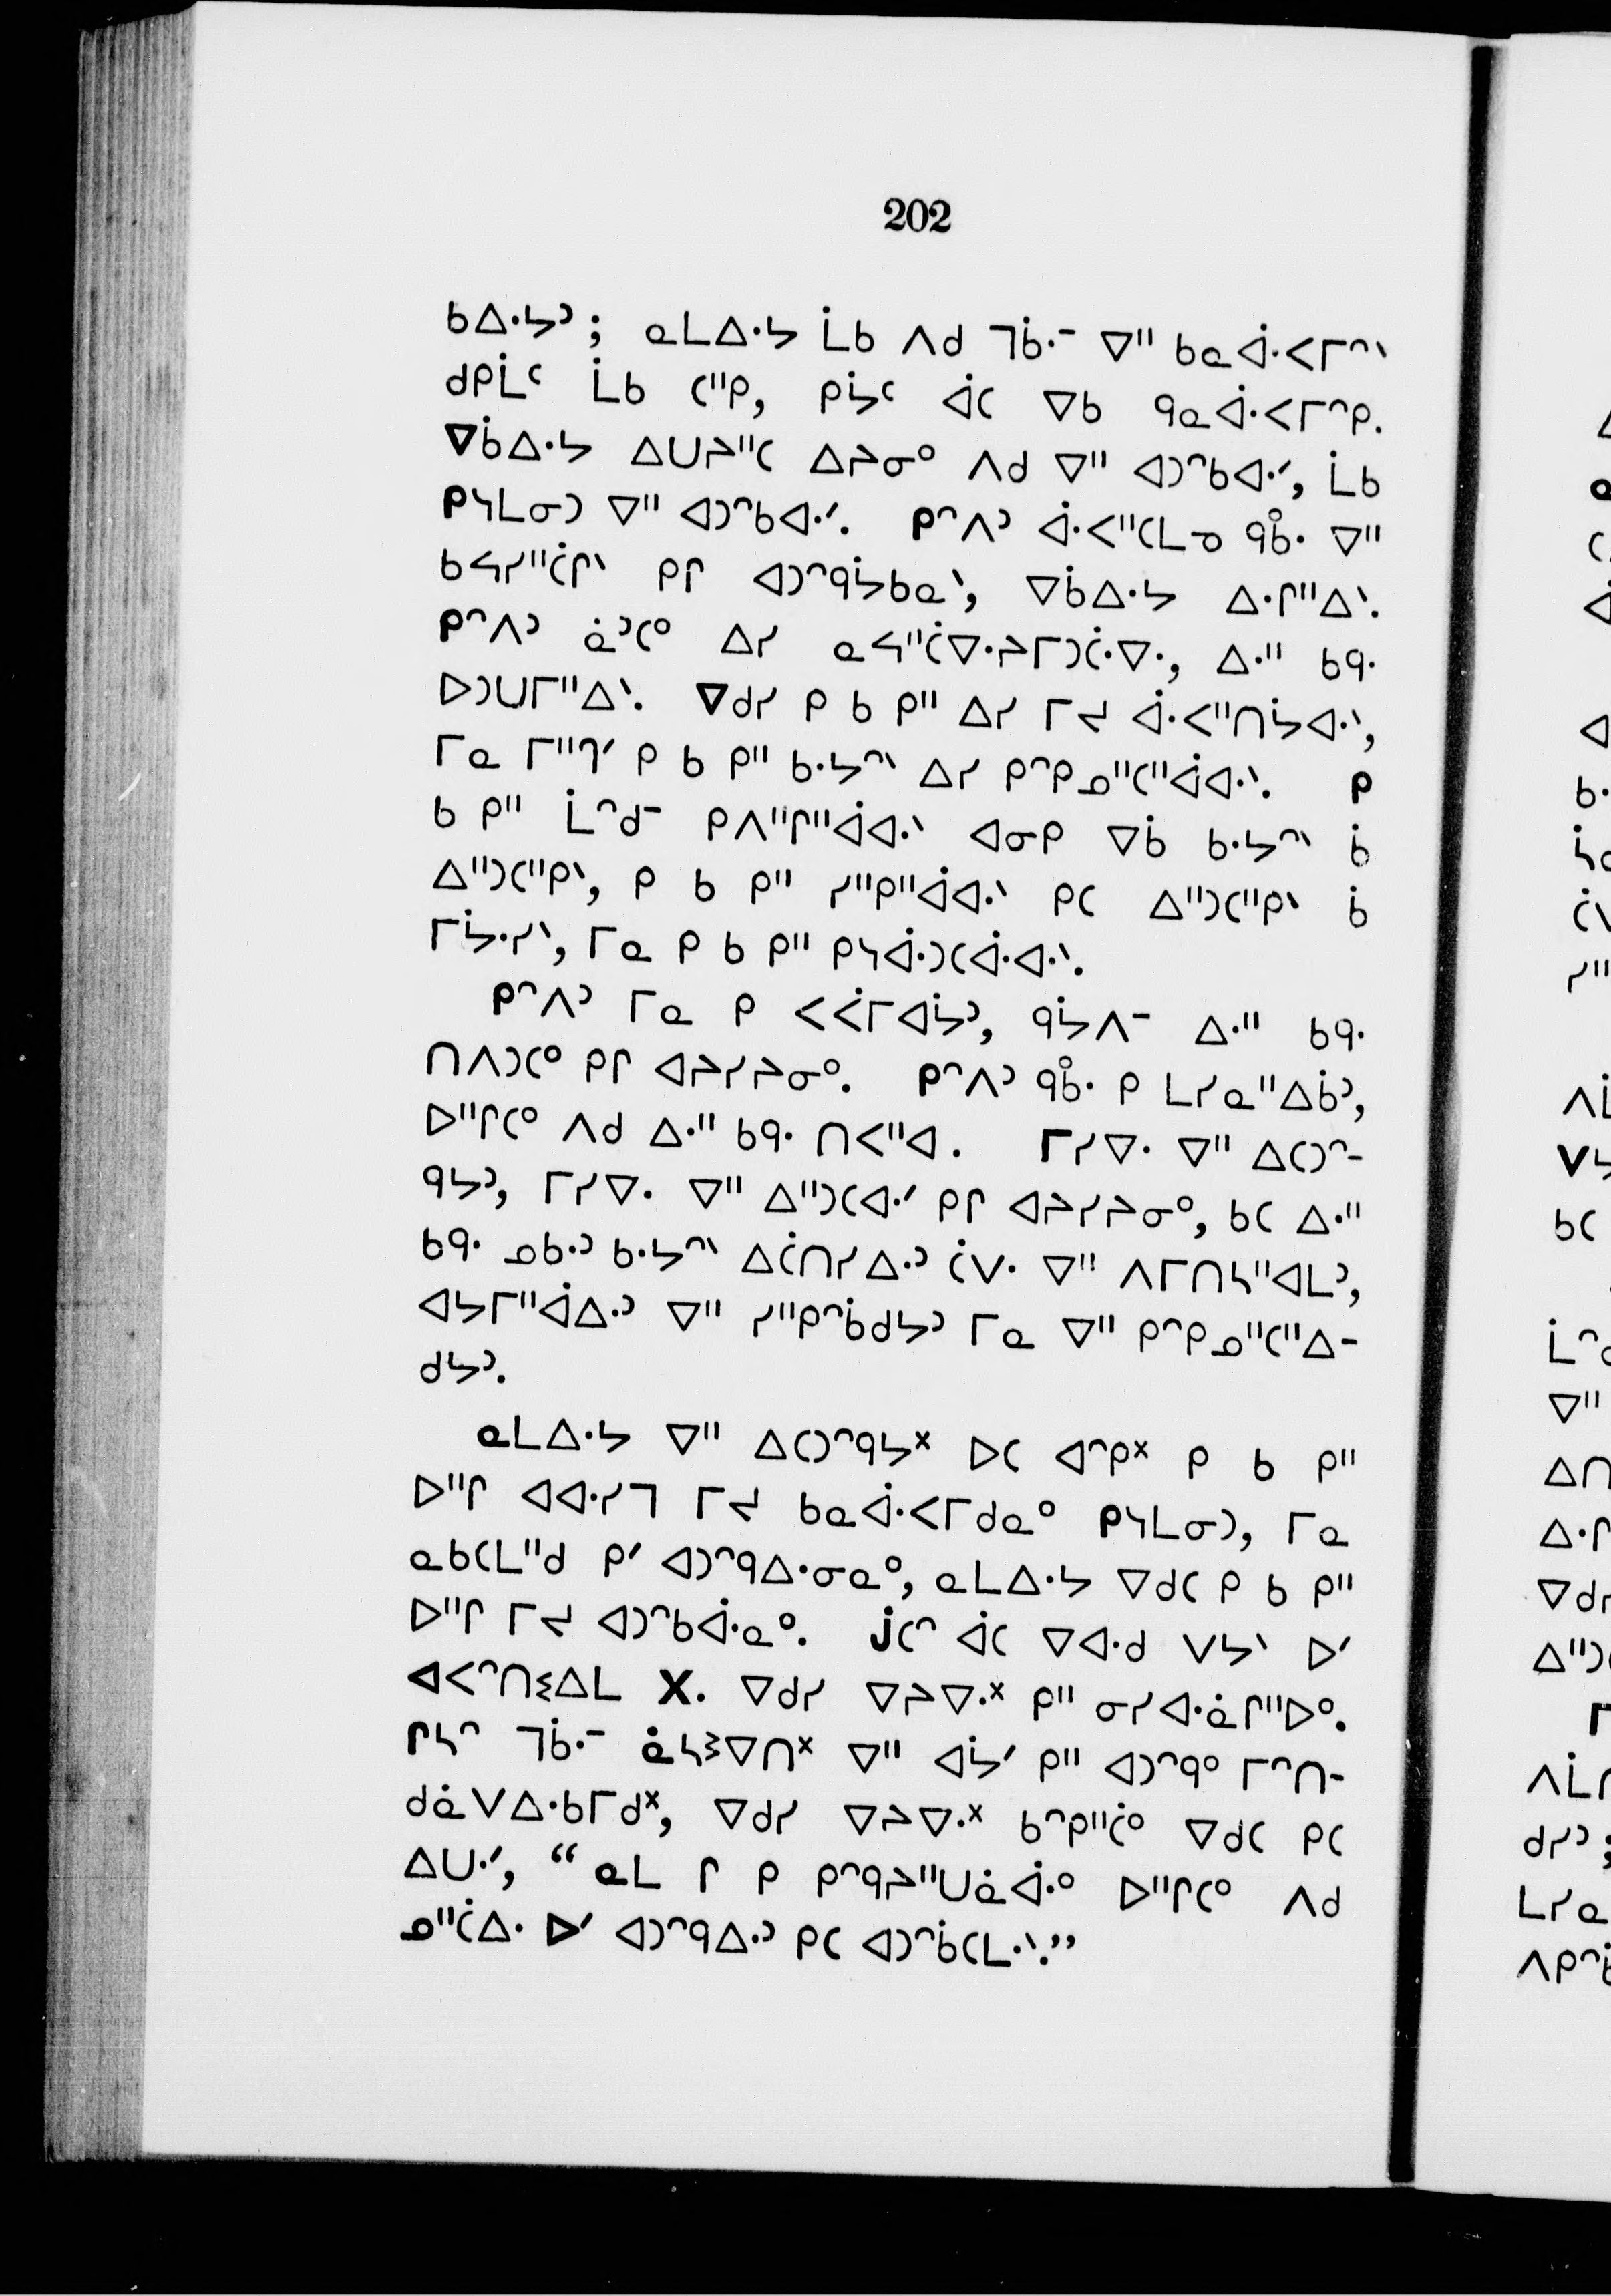 202
ᑲᐃᐧᔭᐣ; ᓇᒪᐃᐧᔭ ᒫᑲ ᐱᑯ ᒣᑳᐧᐨ ᐁᐦ ᑲᓇᐚᐸᒥᐢᐠ
ᑯᑭᒫᑦ ᒫᑲ ᑕᐦᑭ, ᑭᔮᑦ ᐋᑕ ᐁᑲ ᑫᓇᐚᐸᒥᐢᑭ.
ᐁᑳᐃᐧᔭ ᐃᑌᔨᐦᑕ ᐃᔨᓂᐤ ᐱᑯ ᐁᐦ ᐊᑐᐢᑲᐊᐧᐟ, ᒫᑲ
ᑭᓴᒪᓂᑐ ᐁᐦ ᐊᑐᐢᑲᐊᐧᐟ. ᑭᐢᐱᐣ ᐚᐸᐦᑕᒪᓄ ᑫᑳᐧᐤ ᐁᐦ
ᑲᔦᓯᐦᑖᒋᐠ ᑭᒋ ᐊᑐᐢᑫᔮᑲᓇᐠ, ᐁᑳᐃᐧᔭ ᐃᐧᒋᐦᐃᐠ.
ᑭᐢᐱᐣ ᓈᐣᑕᐤ ᐃᓯ ᓇᔦᐦᑖᐁᐧᔨᒥᑐᑖᐧᐁᐧ, ᐃᐧᐦ ᑲᑫᐧ
ᐅᑐᑌᒥᐦᐃᐠ. ᐁᑯᓯ ᑭ ᑲ ᑭᐦ ᐃᓯ ᒥᔪ ᐚᐸᐦᑎᔮᐊᐧᐠ,
ᒥᓇ ᒥᐦᒉᐟ ᑭ ᑲ ᑭᐦ ᑲᐧᔭᐢᐠ ᐃᓯ ᑭᐢᑭᓄᐦᑕᐦᐋᐊᐧᐠ. ᑭ
ᑲ ᑭᐦ ᒫᐢᑯᐨ ᑭᐱᐦᒋᐦᐋᐊᐧᐠ ᐊᓂᑭ ᐁᑳ ᑲᐧᔭᐢᐠ ᑳ
ᐃᐦᑐᑕᐦᑭᐠ, ᑭ ᑲ ᑭᐦ ᓯᐦᑭᐦᐋᐊᐧᐠ ᑭᑕ ᐃᐦᑐᑕᐦᑭᐠ ᑳ
ᒥᔮᐧᓯᐠ, ᒥᓇ ᑭ ᑲ ᑭᐦ ᑭᓴᐚᑐᑕᐚᐊᐧᐠ.
ᑭᐢᐱᐣ ᒥᓇ ᑭ ᐸᐹᒥᐊᔮᐣ, ᑫᔮᐱᐨ ᐃᐧᐦ ᑲᑫᐧ
ᑎᐱᑐᑕᐤ ᑭᒋ ᐊᔨᓯᔨᓂᐤ. ᑭᐢᐱᐣ ᑫᑳᐧᐤ ᑭ ᒪᓯᓇᐦᐃᑳᐣ,
ᐅᐦᒋᑕᐤ ᐱᑯ ᐃᐧᐦ ᑲᑫᐧ ᑎᐸᐦᐊ. ᒥᓯᐁᐧ ᐁᐦ ᐃᑕᑐᐢ-
ᑫᔭᐣ, ᒥᓯᐁᐧ ᐁᐦ ᐃᐦᑐᑕᐊᐧᐟ ᑭᒋ ᐊᔨᓯᔨᓂᐤ, ᑲᑕ ᐃᐧᐦ
ᑲᑫᐧ ᓄᑲᐧᐣ ᑲᐧᔭᐢᐠ ᐃᑖᑎᓯᐃᐧᐣ ᑖᐯᐧ ᐁᐦ ᐱᒥᑎᓴᐦᐊᒪᐣ,
ᐊᔭᒥᐦᐋᐃᐧᐣ ᐁᐦ ᓯᐦᑭᐢᑳᑯᔭᐣ ᒥᓇ ᐁᐦ ᑭᐢᑭᓄᐦᑕᐦᐃ-
ᑯᔭᐣ.
ᓇᒪᐃᐧᔭ ᐁᐦ ᐃᑕᑐᐢᑫᔭᕽ ᐅᑕ ᐊᐢᑭᕽ ᑭ ᑲ ᑭᐦ
ᐅᐦᒋ ᐊᐊᐧᓯᒣ ᒥᔪ ᑲᓇᐚᐸᒥᑯᓇᐤ ᑭᓴᒪᓂᑐ, ᒥᓇ
ᓇᑲᑕᒪᐦᑯ ᑭᐟ ᐊᑐᐢᑫᐃᐧᓂᓇᐤ, ᓇᒪᐃᐧᔭ ᐁᑯᑕ ᑭ ᑲ ᑭᐦ
ᐅᐦᒋ ᒥᔪ ᐊᑐᐢᑲᐚᓇᐤ. ᒎᑕᐢ ᐋᑕ ᐁᐊᐧᑯ ᐯᔭᐠ ᐅᐟ
ᐊᐸᐢᑎᓬᐃᒪ X. ᐁᑯᓯ ᐁᔨᐁᐧᕽ ᑭᐦ ᓂᓯᐊᐧᓈᒋᐦᐅᐤ.
ᒋᓴᐢ ᒣᑳᐧᐨ ᓈᓴᕒᐁᑎᕽ ᐁᐦ ᐊᔮᐟ ᑭᐦ ᐊᑐᐢᑫᐤ ᒥᐢᑎ-
ᑯᓈᐯᐃᐧᑲᒥᑯᕽ, ᐁᑯᓯ ᐁᔨᐁᐧᕽ ᑲᐢᑭᐦᑖᐤ ᐁᑯᑕ ᑭᑕ
ᐃᑌᐧᐟ, “ᓇᒪ ᒋ ᑭ ᑭᐢᑫᔨᐦᑌᓈᐚᐤ ᐅᐦᒋᑕᐤ ᐱᑯ
ᓄᐦᑖᐃᐧ ᐅᐟ ᐊᑐᐢᑫᐃᐧᐣ ᑭᑕ ᐊᑐᐢᑳᑕᒪᐧᐠ.”